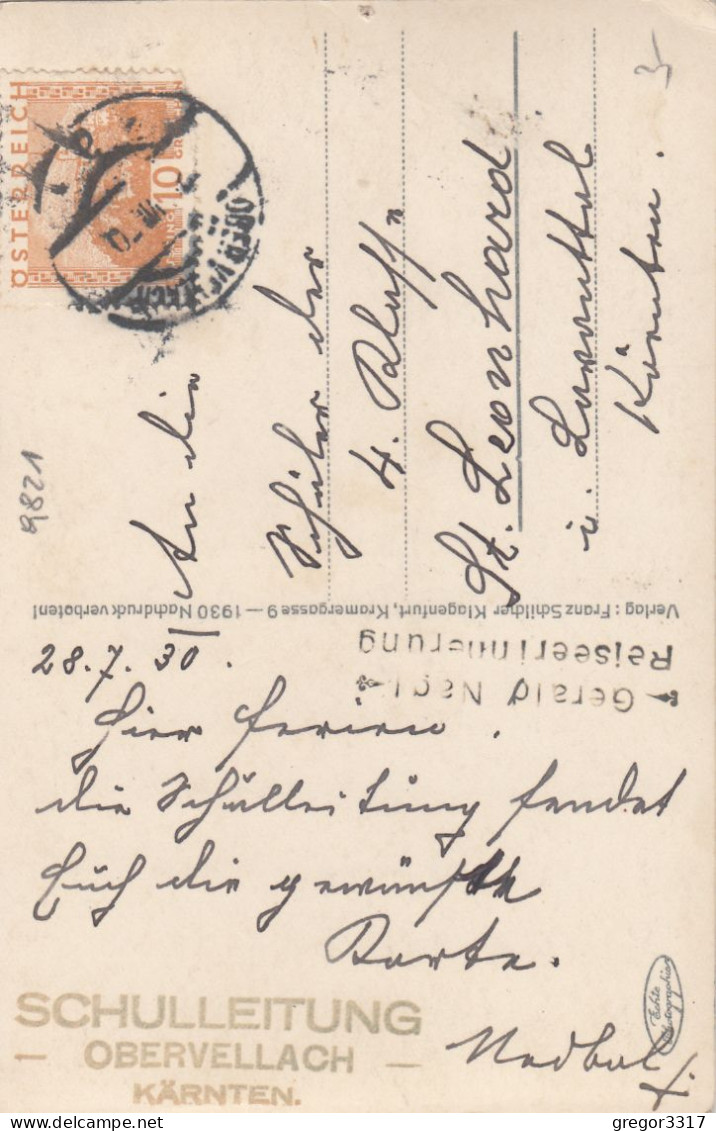 ÖSTERREICH
10
GR
OBERVELLACH
An die
Schüler der
4. Klasse
St. Leonhard
i. Lavanttal
Kärnten.
9821
Verlag: Franz Schilcher Klagenfurt, Kramergasse 9 — 1930 Nachdruck verboten!
Gerald Nagl
Reiseerinnerung
28. 7. 30.
Hier Ferien.
die Schulleitung sendet
Euch die gewünschte
Karte.
SCHULLEITUNG
— OBERVELLACH —
KÄRNTEN.
Echte
Photographie
gregor3317